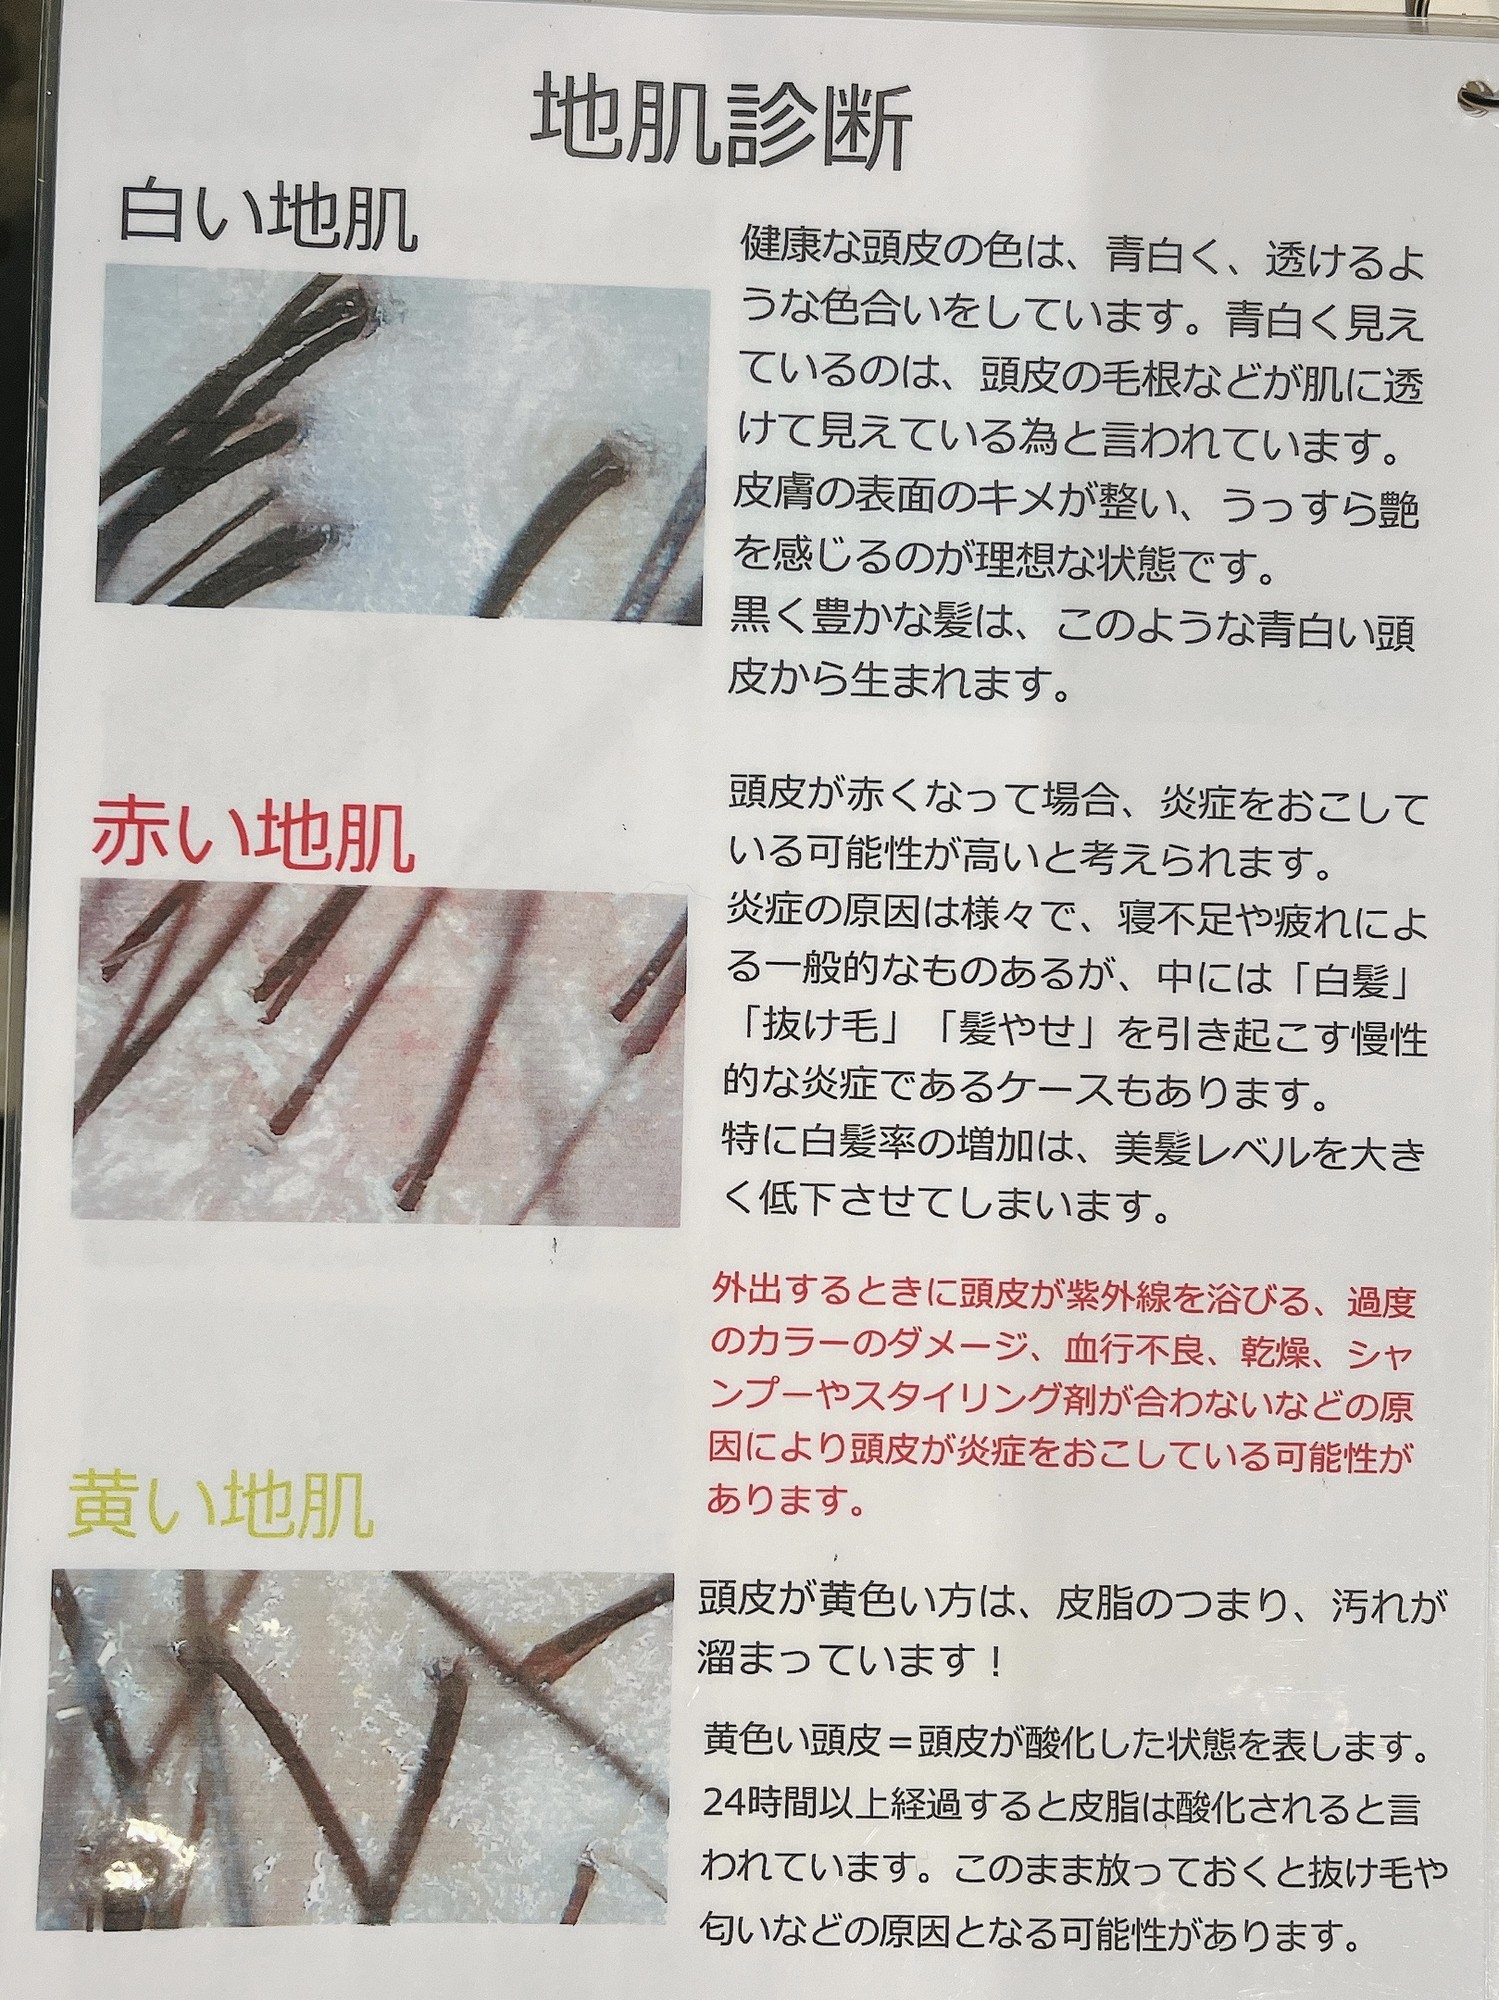 地肌診断
白い地肌
健康な頭皮の色は、青白く、透けるよ
うな色合いをしています。青白く見え
ているのは、頭皮の毛根などが肌に透
けて見えている為と言われています。
皮膚の表面のキメが整い、うっすら艶
を感じるのが理想な状態です。
黒く豊かな髪は、このような青白い頭
皮から生まれます。
赤い地肌
頭皮が赤くなって場合、炎症をおこして
いる可能性が高いと考えられます。
炎症の原因は様々で、寝不足や疲れによ
る一般的なものあるが、中には「白髪」
「抜け毛」「髪やせ」を引き起こす慢性
的な炎症であるケースもあります。
特に白髪率の増加は、美髪レベルを大き
く低下させてしまいます。
外出するときに頭皮が紫外線を浴びる、過度
のカラーのダメージ、血行不良、乾燥、シャ
ンプーやスタイリング剤が合わないなどの原
因により頭皮が炎症をおこしている可能性が
あります。
黄い地肌
頭皮が黄色い方は、皮脂のつまり、汚れが
溜まっています！
黄色い頭皮＝頭皮が酸化した状態を表します。
24時間以上経過すると皮脂は酸化されると言
われています。このまま放っておくと抜け毛や
匂いなどの原因となる可能性があります。